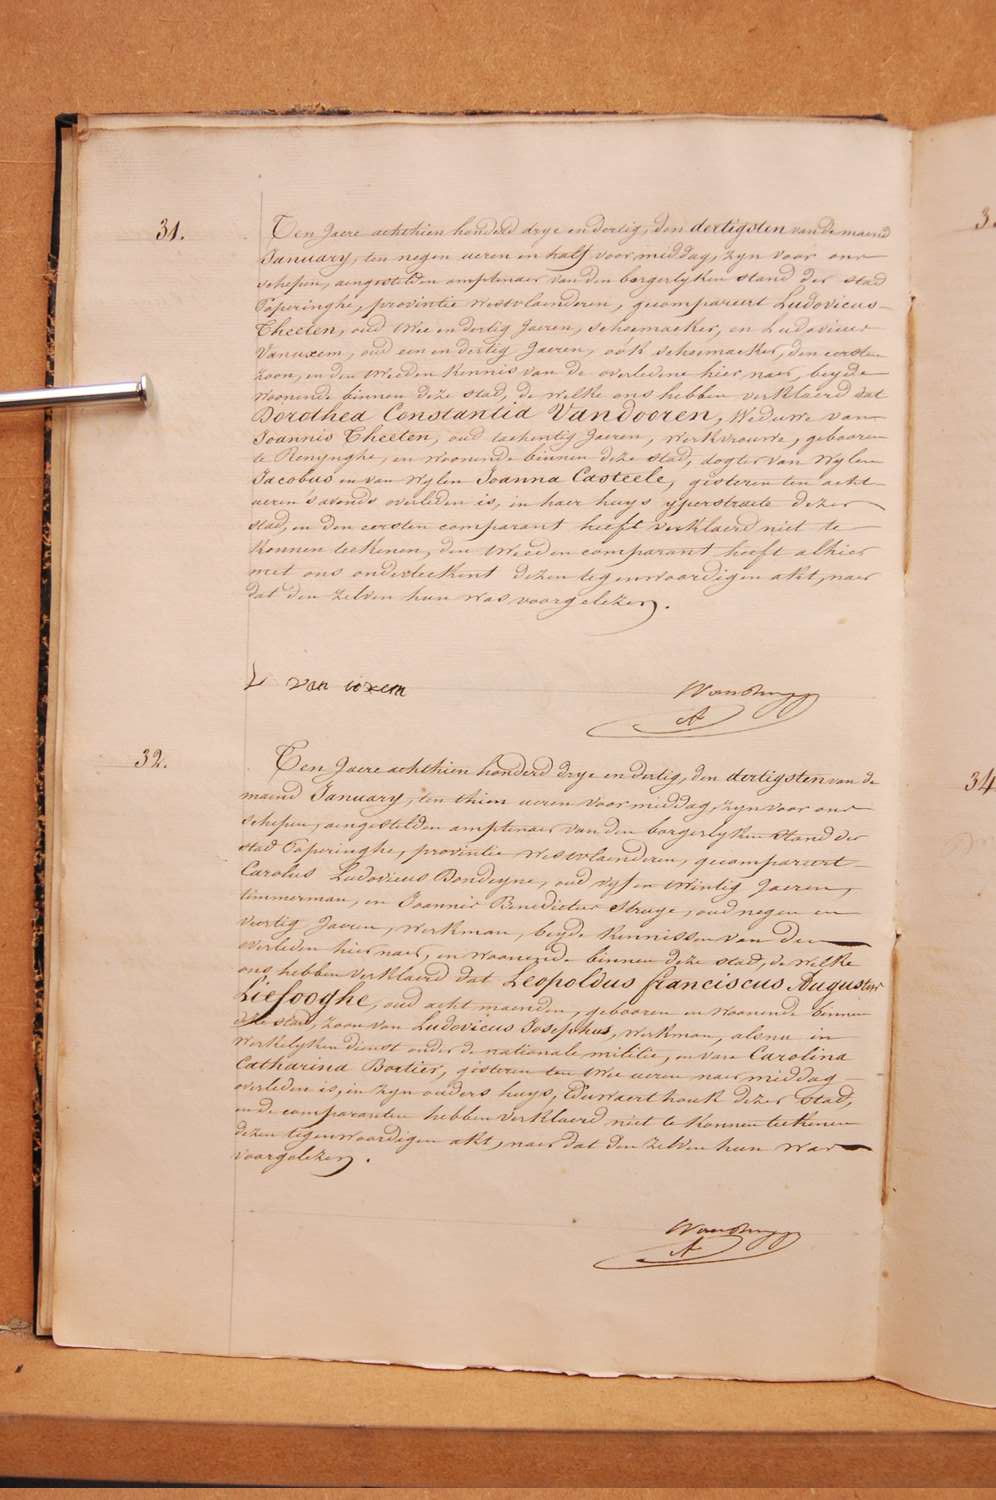 31.
Ten Jaere achthien honderd drye en dertig, den dertigsten van de maend
January, ten negen ueren en half voormiddag, zyn voor ons
schepen, aengestelden amptenaer van den borgerlyken stand der stad
Poperinghe, provintie westvlaenderen, gecompareert Ludovicus
Theeten, oud twee en dertig Jaeren, schoemaeker, en Ludovicus
Vanuxem, oud een en dertig Jaeren, ook schoemaeker, den eersten
zoon, en den tweeden kennis van de overledene hier naer, beyde
woonende binnen deze stad, de welke ons hebben verklaerd dat
Dorothea Constantia Vandooren, Weduwe van
Joannis Theeten, oud tachentig Jaeren, werkvrouwe, gebooren
te Renynghe, en woonende binnen deze stad, dogter van wylen
Jacobus en van wylen Joanna Casteele, gisteren ten acht
ueren s'avonds overleden is, in haer huys yperstraete dezer
stad, en den eersten comparant heeft verklaerd niet te
konnen teekenen, den tweeden comparant heeft alhier
met ons onderteekent dezen tegenwoordigen akt, naer
dat den zelven hun was voorgelezen.
L van uxem
32.
Ten Jaere achthien honderd drye en dertig, den dertigsten van de
maend January, ten thien ueren voormiddag, zyn voor ons
schepen, aengestelden amptenaer van den borgerlyken stand der
stad Poperinghe, provintie Westvlaenderen, gecompareert
Carolus Ludovicus Dondeyne, oud vyf en twintig Jaeren,
timmerman, en Joannis Benedictus Struye, oud negen en
veertig Jaeren, werkman, beyde kennissen van den
overleden hier naer, en woonende binnen deze stad, de welke
ons hebben verklaerd dat Leopoldus franciscus Augustus
Liefooghe, oud acht maenden, gebooren en woonende binnen
deze stad, zoon van Ludovicus Josephus, werkman, alsnu in
werkelyken dienst onder de nationale militie, en van Carolina
Catharina Bortier, gisteren ten twee ueren naermiddag
overleden is, in zyn ouders huys, Duwaert houk dezer stad,
en de comparanten hebben verklaerd niet te konnen teekenen
dezen tegenwoordigen akt, naer dat den zelven hun was
voorgelezen.
34